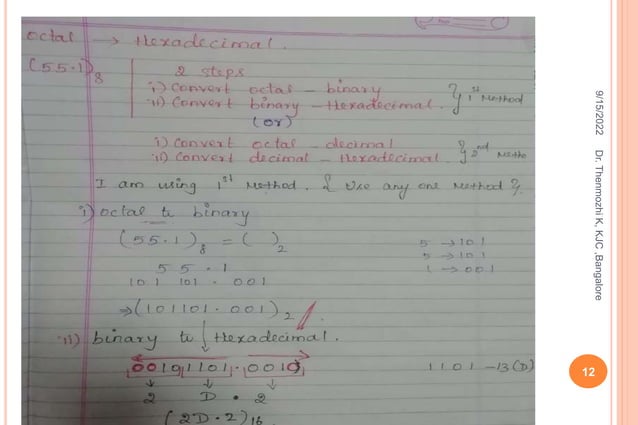 octal → Hexadecimal.
(55.1)8
2 steps
i) Convert octal - binary
ii) Convert binary - Hexadecimal. } 1st Method
(or)
i) Convert octal - decimal
ii) Convert decimal - Hexadecimal. } 2nd Metho
I am using 1st Method. { Use any one Method }.
i) octal to binary
(55.1)8 = ( )2
5 → 101
5 → 101
1 → 001
5 5 . 1
101 101 . 001
⇒ (101101.001)2
ii) binary to Hexadecimal.
00101101.0010
1101 - 13(D)
2 D . 2
(2D.2)16
9/15/2022 Dr. Thenmozhi K, KJC ,Bangalore
12